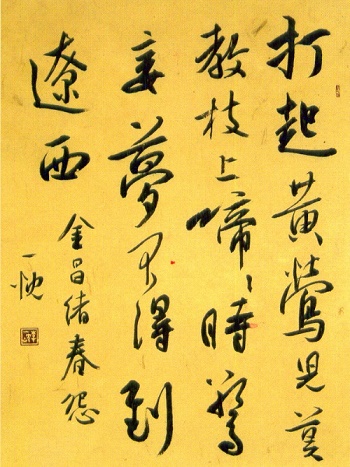 打起黄鶯兒莫
教枝上啼〻時驚
妾夢不得到
遼西
金昌緒春怨
一